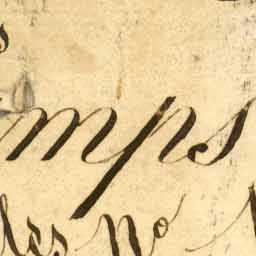 s
mps
les No